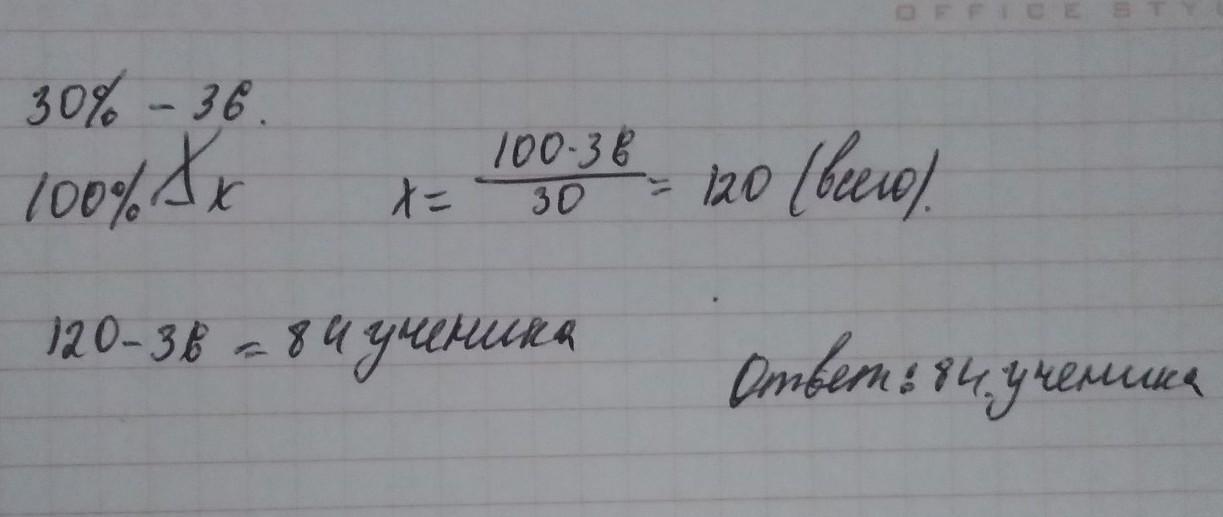 OFFICE STY
30% - 36.
100% x
x = 100·36 / 30 = 120 (всего).
120 - 36 = 84 ученика
Ответ: 84 ученика